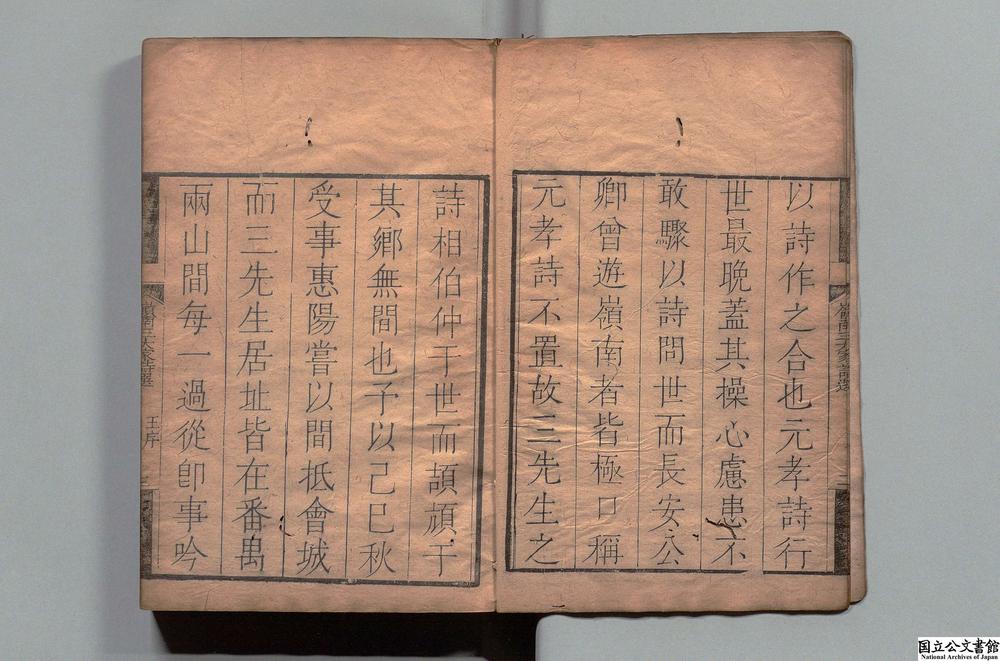 以詩作之合也元孝詩行
世最晩蓋其操心慮患不
敢驟以詩問世而長安公
卿曾遊嶺南者皆極口稱
元孝詩不置故三先生之
詩相伯仲于世而頡頏于
其鄉無間也予以己巳秋
受事惠陽嘗以間抵會城
而三先生居址皆在番禺
兩山間每一過從卽事吟
嶺南三大家詩選
王序
国立公文書館
National Archives of Japan